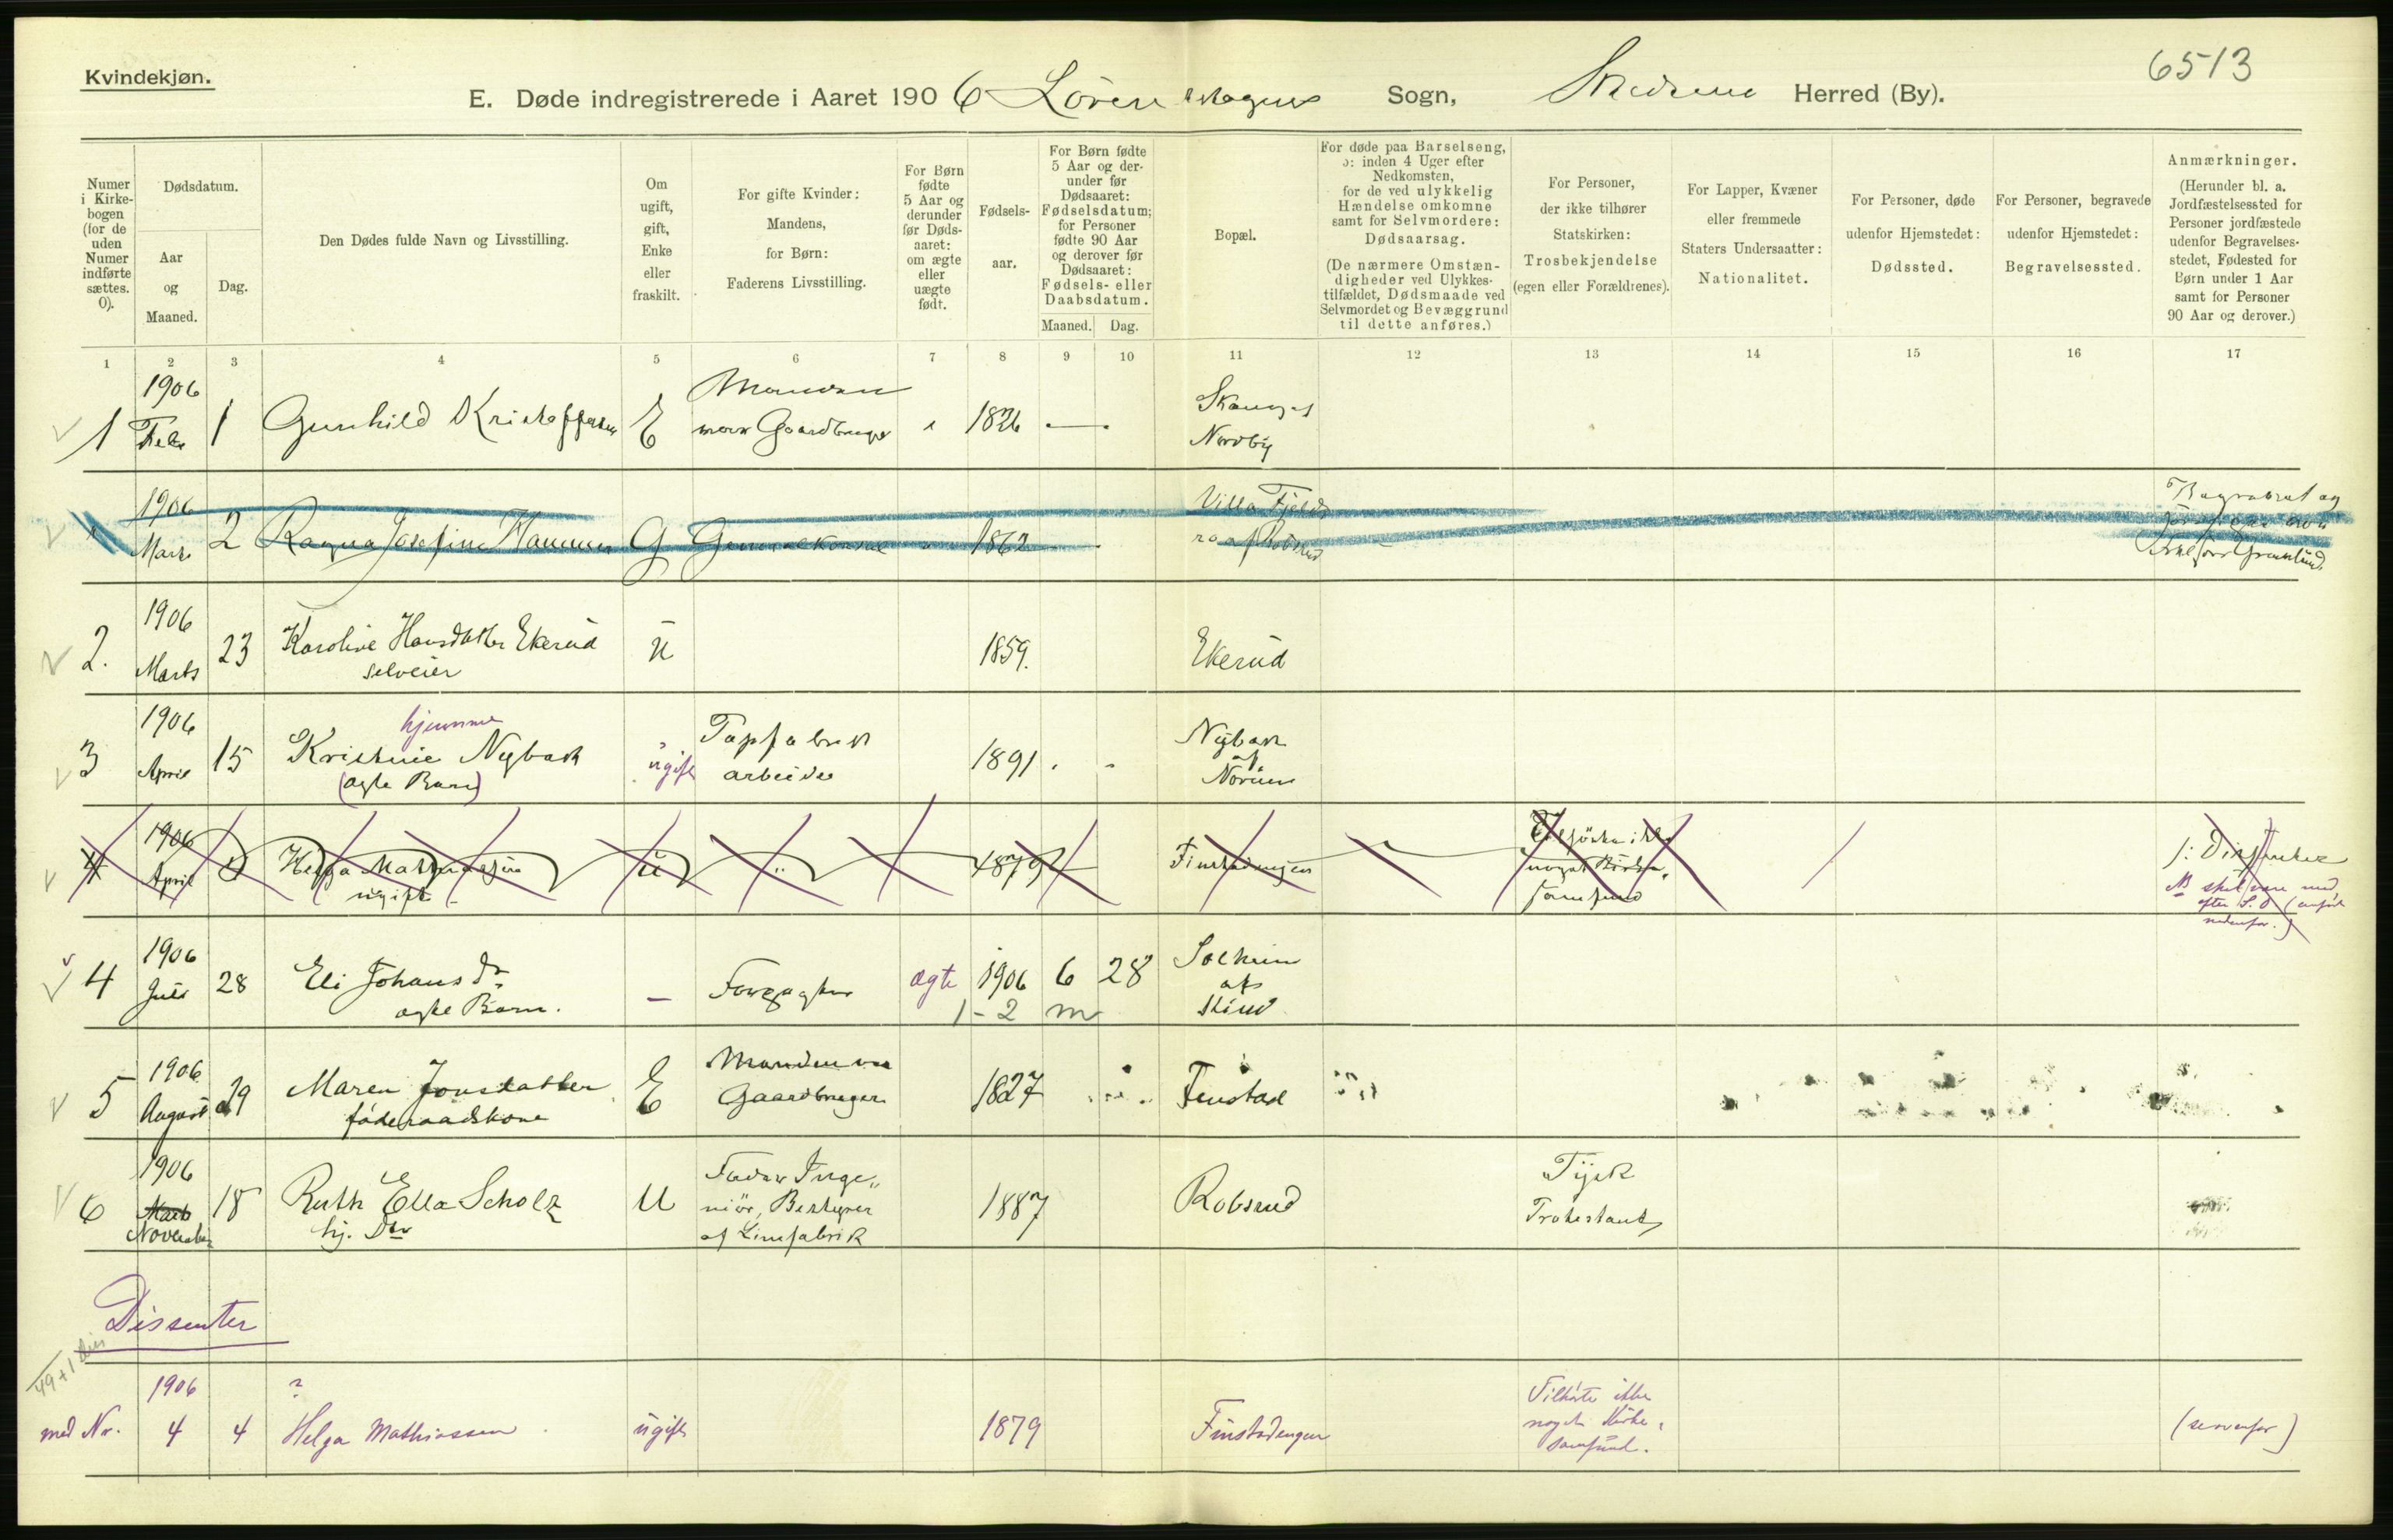 Kvindekjøn.
6513
E. Døde indregistrerede i Aaret 1906 Lörenskogens Sogn, Skedsmo Herred (By).
Numer i Kirkebogen (for de uden Numer indførte sættes. 0).
Dødsdatum.
Aar og Maaned.
Dag.
Den Dødes fulde Navn og Livsstilling.
Om ugift, gift, Enke eller fraskilt.
For gifte Kvinder: Mandens, for Børn: Faderens Livsstilling.
For Børn fødte 5 Aar og derunder før Dødsaaret: om ægte eller uægte født.
Fødselsaar.
For Børn fødte 5 Aar og derunder før Dødsaaret: Fødselsdatum; for Personer fødte 90 Aar og derover før Dødsaaret: Fødsels- eller Daabsdatum.
Maaned. Dag.
Bopæl.
For døde paa Barselseng, ɔ: inden 4 Uger efter Nedkomsten, for de ved ulykkelig Hændelse omkomne samt for Selvmordere: Dødsaarsag.
(De nærmere Omstændigheder ved Ulykkestilfældet, Dødsmaade ved Selvmordet og Bevæggrund til dette anføres.)
For Personer, der ikke tilhører Statskirken: Trosbekjendelse (egen eller Forældrenes).
For Lapper, Kvæner eller fremmede Staters Undersaatter: Nationalitet.
For Personer, døde udenfor Hjemstedet: Dødssted.
For Personer, begravede udenfor Hjemstedet: Begravelsessted.
Anmærkninger.
(Herunder bl. a. Jordfæstelsessted for Personer jordfæstede udenfor Begravelsesstedet, Fødested for Børn under 1 Aar samt for Personer 90 Aar og derover.)
1 2 3 4 5 6 7 8 9 10 11 12 13 14 15 16 17
1 1906 Feb 1 Gunhild Kristoffersen E Manden var Gaardbruger 1826 Nordby
1906 Marts 2 Ragna Josefine Hammer G Generalkonsul 1862 Villa Robsrud
2. 1906 Marts 23 Karoline Hansdatter Ekerud selveier U 1859. Ekerud
3 1906 April 15 hjemme Kristine Nybak (ægte Barn) ugift Papfabrik arbeider 1891 Nybak af Norum
4 1906 April Helga Mathiassen ugift U 1879 Finstadengen Tilhörte ikke noget Kirkesamfund
: Dissenter
NB skal være med efter S. D (anført nedenfor.)
4 1906 Juli 28 Eli Johansdr ægte Barn. — Forpagter ægte 1906 6 28
1-2 m
Solheim
5 1906 August 29 Maren Jonsdatter föderaadskone E Manden var Gaardbruger 1827 Finstad
6 1906 Marts November 18 Ruth Ella Scholz hj. Dtr U Fader Ingeniör, Bestyrer af Limfabrik 1887 Robsrud Tysk Protestant
Dissenter
49+1 diss
med Nr. 1906 4 4 ? Helga Mathiassen ugift 1879 Finstadengen Tilhörte ikke noget Kirkesamfund. (se ovenfor)